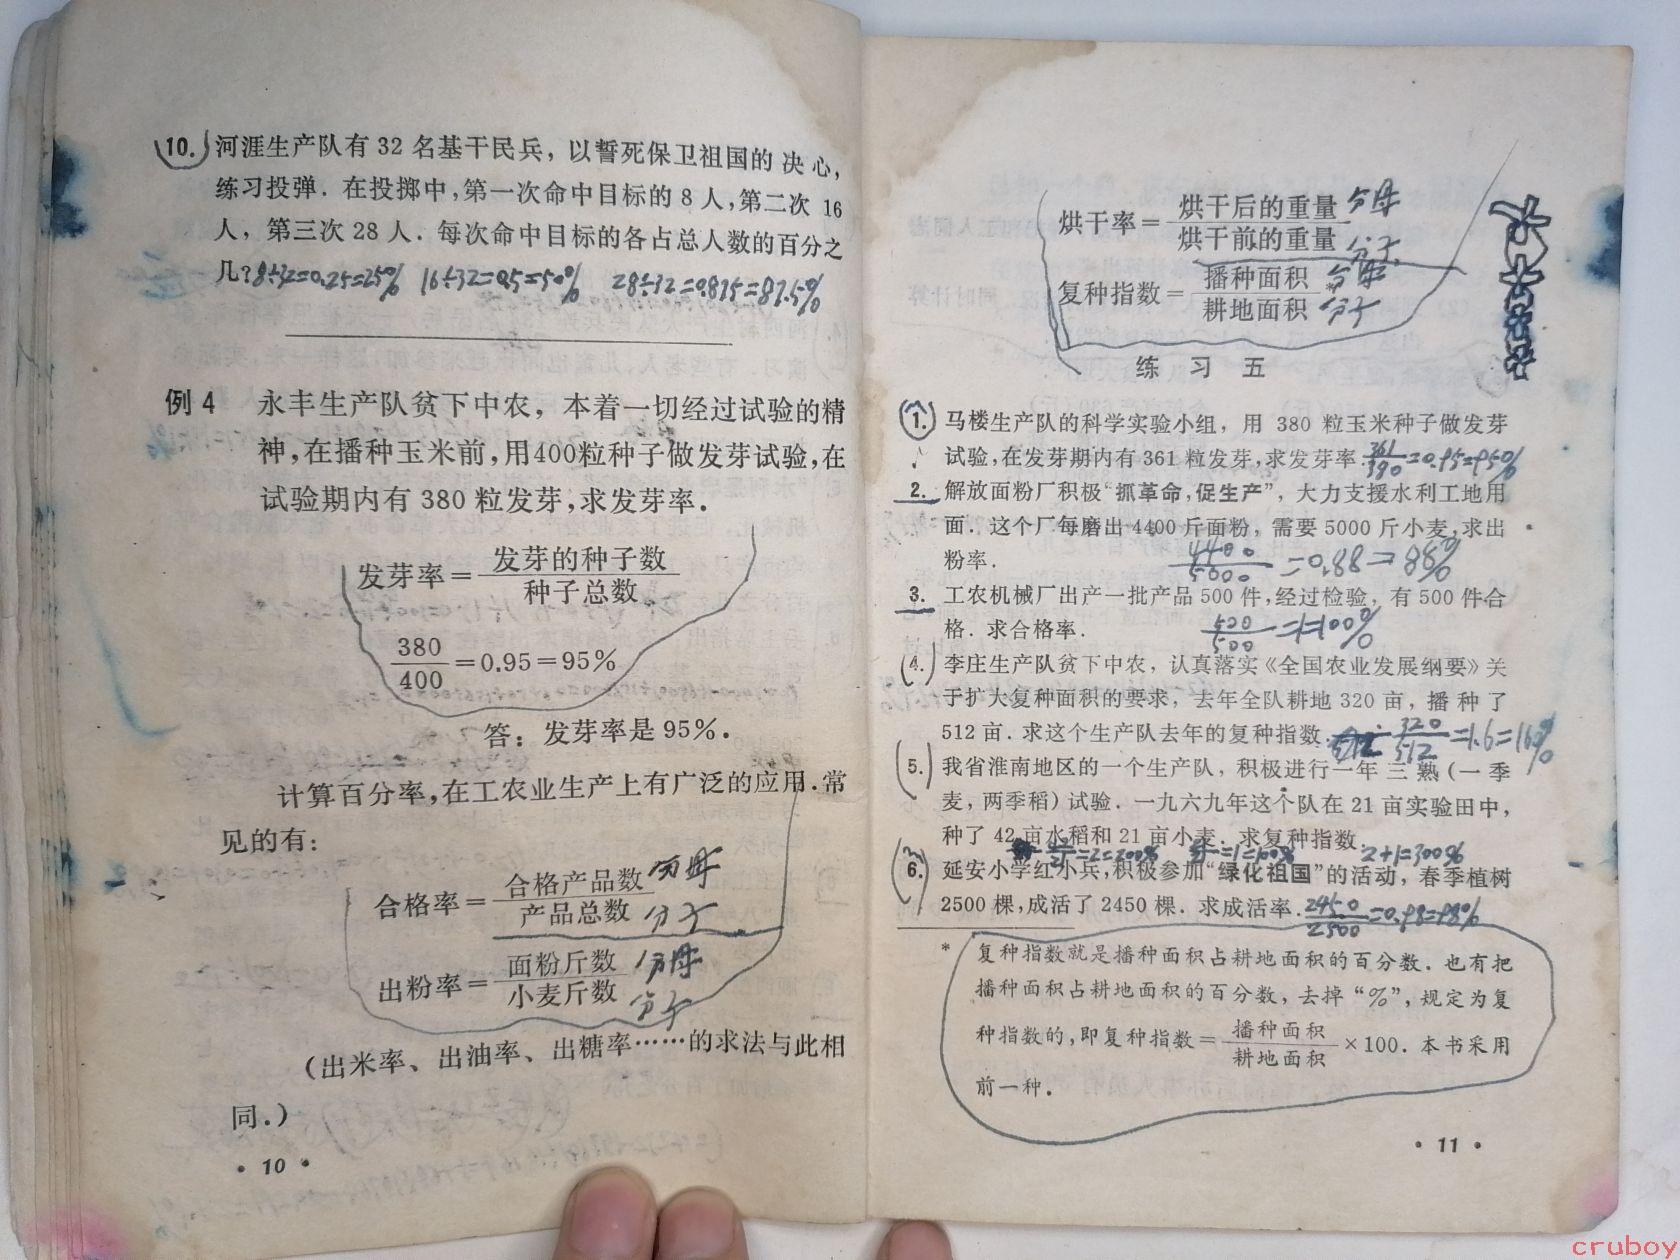 10. 河涯生产队有 32 名基干民兵，以誓死保卫祖国的决心，
练习投弹．在投掷中，第一次命中目标的 8 人，第二次 16
人，第三次 28 人．每次命中目标的各占总人数的百分之
几？8÷32=0.25=25% 16÷32=0.5=50% 28÷32=0.875=87.5%
例 4 永丰生产队贫下中农，本着一切经过试验的精
神，在播种玉米前，用400粒种子做发芽试验，在
试验期内有 380 粒发芽，求发芽率．
发芽率＝发芽的种子数/种子总数
380/400＝0.95＝95％
答：发芽率是 95％．
计算百分率，在工农业生产上有广泛的应用．常
见的有：
合格率＝合格产品数/产品总数 分母 分子
出粉率＝面粉斤数/小麦斤数 分母 分子
（出米率、出油率、出糖率……的求法与此相
同．）
· 10 ·
烘干率＝烘干后的重量/烘干前的重量 分母 分子
复种指数＝播种面积/耕地面积 * 分母 分子
练 习 五
1. 马楼生产队的科学实验小组，用 380 粒玉米种子做发芽
试验，在发芽期内有 361 粒发芽，求发芽率．361/390=0.95=95%
2. 解放面粉厂积极“抓革命，促生产”，大力支援水利工地用
面．这个厂每磨出 4400 斤面粉，需要 5000 斤小麦，求出
粉率． 4400/5000=0.88=88%
3. 工农机械厂出产一批产品 500 件，经过检验，有 500 件合
格．求合格率． 500/500=1=100%
4. 李庄生产队贫下中农，认真落实《全国农业发展纲要》关
于扩大复种面积的要求，去年全队耕地 320 亩，播种了
512 亩．求这个生产队去年的复种指数．320/512=1.6=160%
5. 我省淮南地区的一个生产队，积极进行一年三熟（一季
麦，两季稻）试验．一九六九年这个队在 21 亩实验田中，
种了 42 亩水稻和 21 亩小麦．求复种指数．
=2=200% =1=100% 2+1=300%
6. 延安小学红小兵，积极参加“绿化祖国”的活动，春季植树
2500 棵，成活了 2450 棵．求成活率．2450/2500=0.98=98%
* 复种指数就是播种面积占耕地面积的百分数．也有把
播种面积占耕地面积的百分数，去掉“％”，规定为复
种指数的，即复种指数＝播种面积/耕地面积×100．本书采用
前一种．
· 11 ·
cruboy